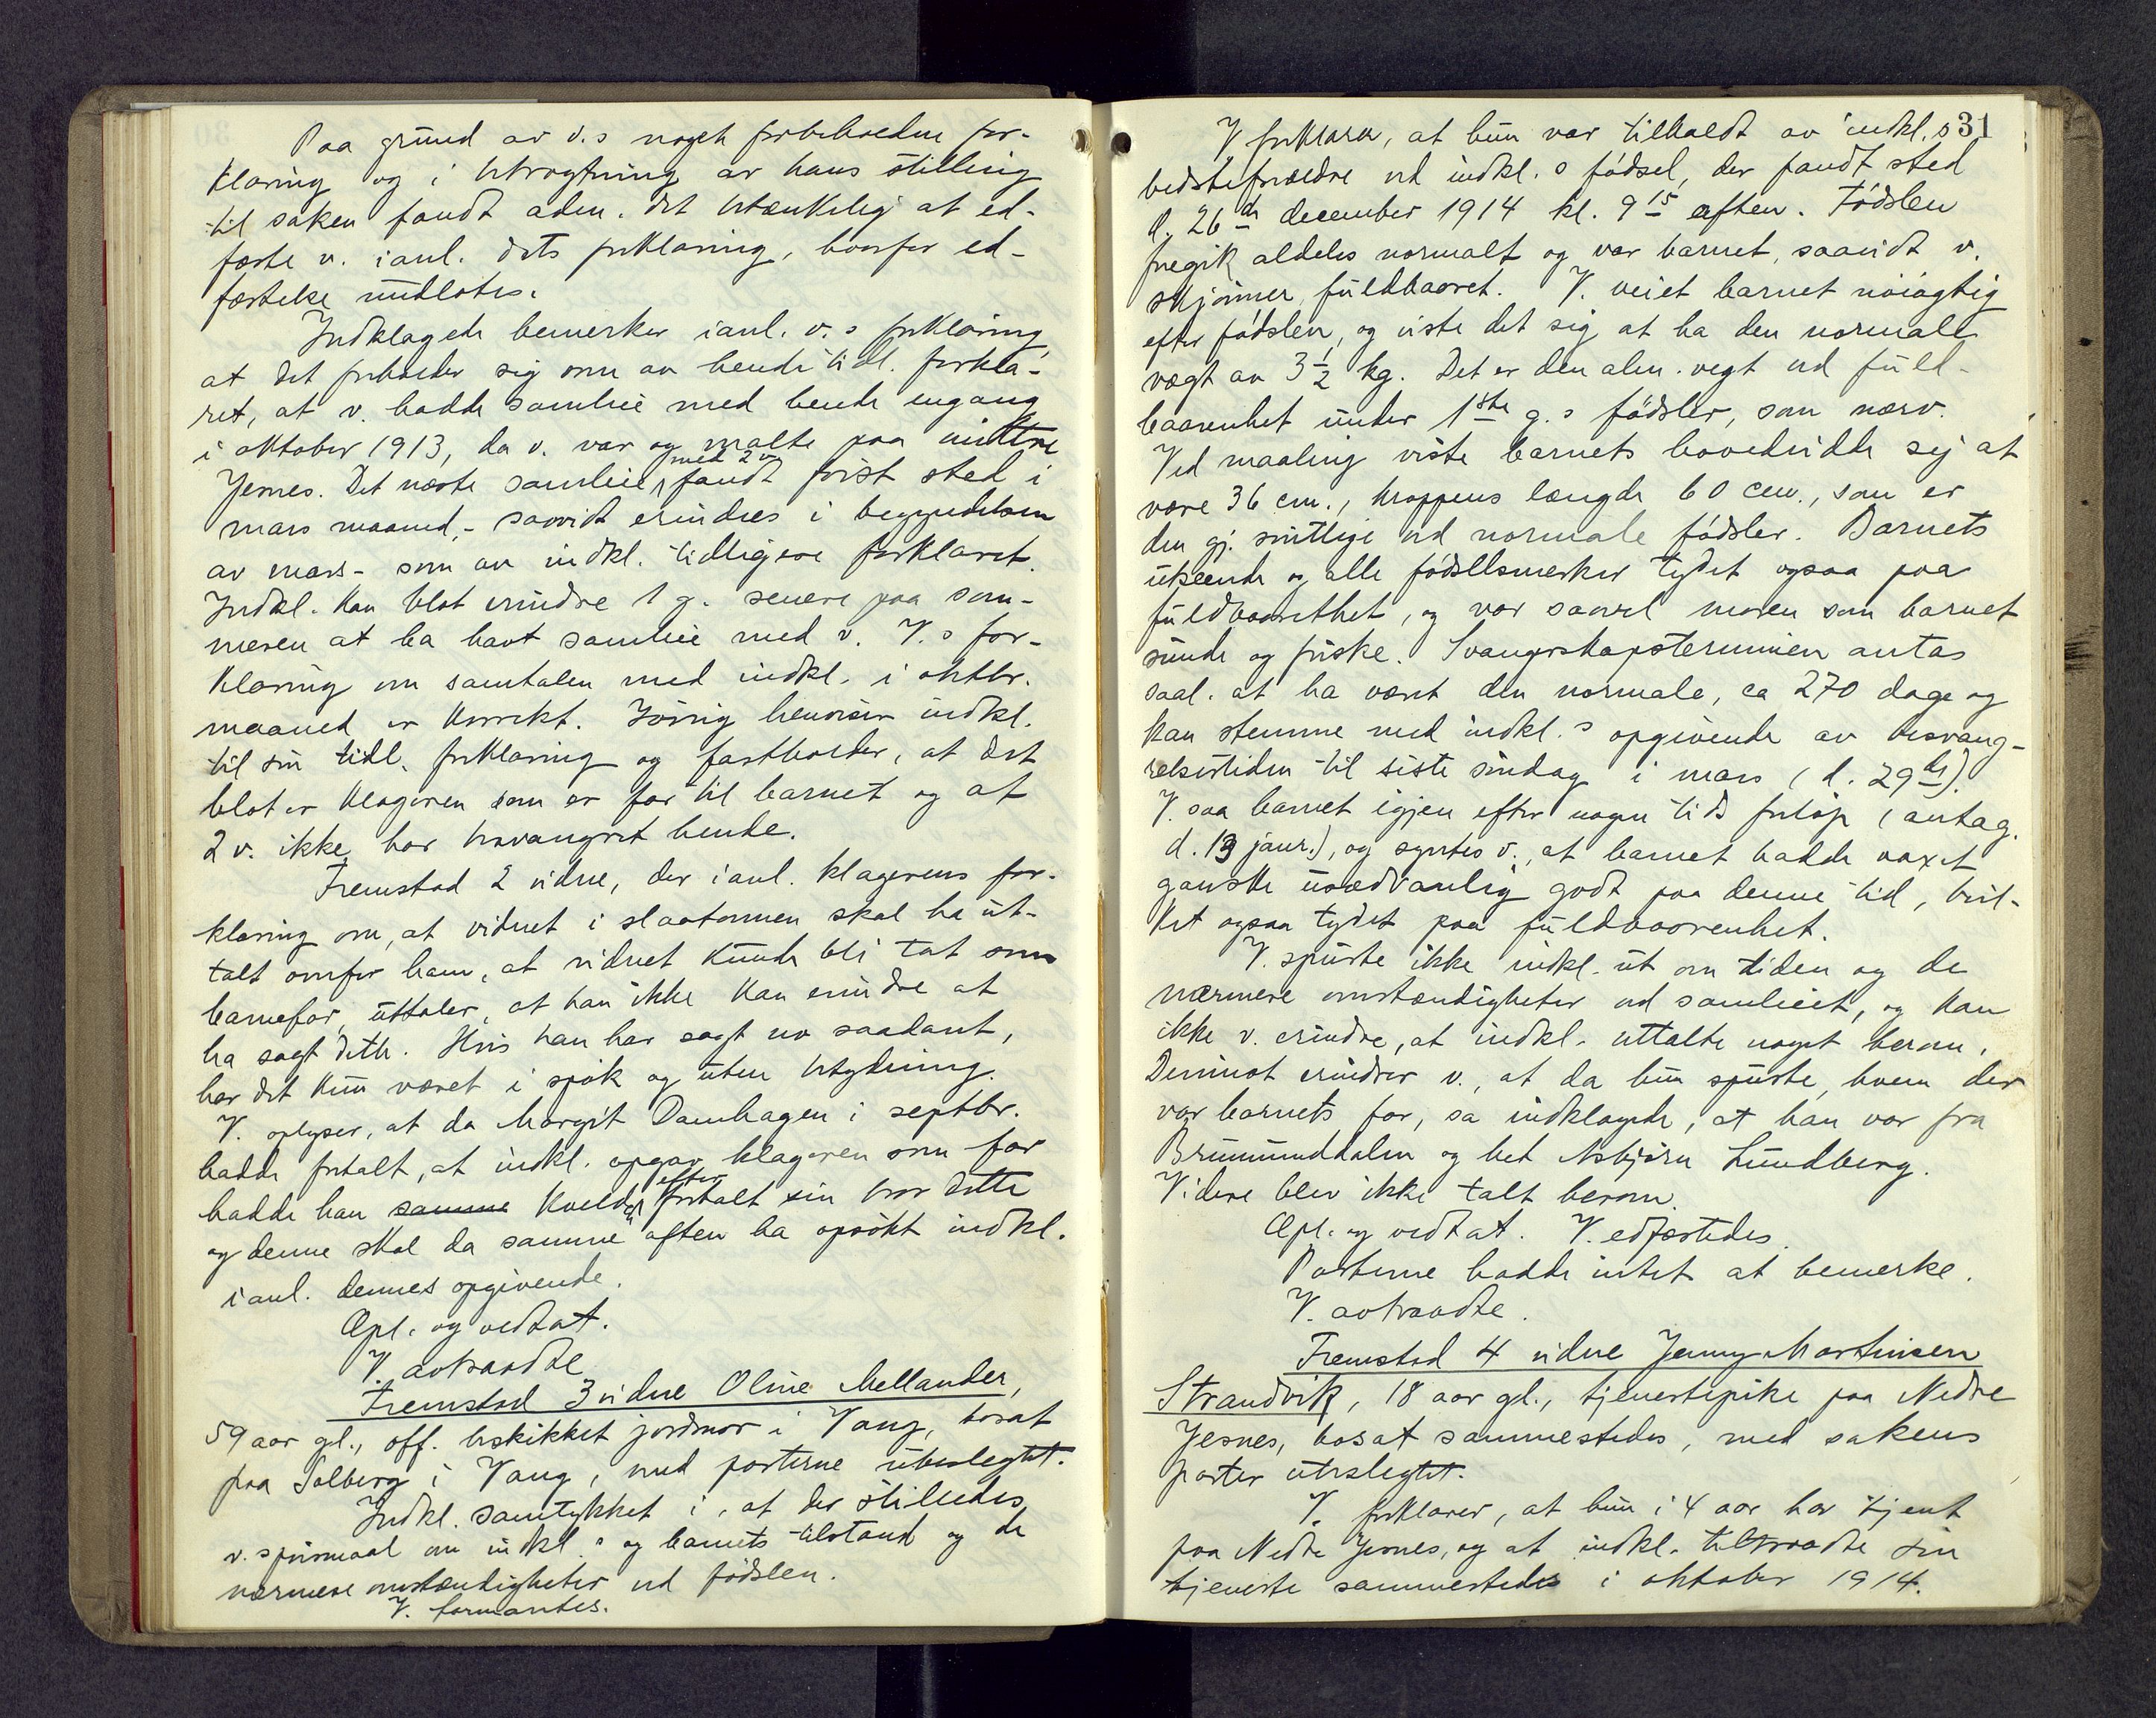 Paa grund av v.s noget forbeholdne for-
klaring og i betragtning av hans stilling
til saken fandt adm. det betænkelig at ed-
fæste v. i anl. dets forklaring, hvorfor ed-
fæstelse undlotes.
Indklagede bemerker i anl. v.s forklaring
at det forholder sig som av hende tidl. forkla-
ret, at v. hadde samleie med hende engang
i oktober 1913, da v. var og malte paa nedre
Jesnes. Det næste samleie med 2 v. fandt først sted i
mars maaned,- saavidt erindres i begyndelsen
av mars- som av indkl. tidligere forklaret.
Indkl. kan blot erindre 1 g. senere paa som-
meren at ha havt samleie med v. V.s for-
klaring om samtalen med indkl. i oktbr.
maaned er korrekt. Iøvrig henviser indkl.
til sin tidl. forklaring og fastholder, at det
blot er klageren som er far til barnet og at
2 v. ikke har besvangret hende.
Fremstod 2 vidne, der i anl. klagerens for-
klaring om, at vidnet i slaatonnen skal ha ut-
talt overfor ham, at vidnet kunde bli tat som
barnefar, uttaler, at han ikke kan erindre at
ha sagt dette. Hvis han har sagt no saadant,
har det kun været i spøk og uten betydning.
V. oplyser, at da Margit Damhagen i septbr.
hadde fortalt, at indkl. opgav klageren som far
hadde han samme kvelden efter fortalt sin bror dette
og denne skal da samme aften ha opsøkt indkl.
i anl. dennes opgivende.
Opl. og vedtat.
V. avtraadte.
Fremstod 3 vidne Oline Mellander,
59 aar gl., off. beskikket jordmor i Vang, bosat
paa Solberg i Vang, med parterne ubeslegtet.
Indkl. samtykket i, at der stilledes
v. spørsmaal om indkl.s og barnets tilstand og de
nærmere omstændigheter ved fødslen.
V. formantes.
31
V forklarer, at hun var tilkaldt av indkl.s
bedsteforældre ved indkl.s fødsel, der fandt sted
d. 26de december 1914 kl. 9 15 aften. Fødslen
foregik aldeles normalt og var barnet, saavidt v.
skjønner, fuldbaaret. V. veiet barnet nøiagtig
efter fødslen, og viste det sig at ha den normale
vægt av 3 1/2 kg. Det er den alm. vegt ved fuld-
baarenhet under 1ste g.s fødsler, som nærv.
Ved maaling viste barnets hovedvidde sig at
være 36 cm., kroppens længde 60 cm., som er
den gj. snittlige ved normale fødsler. Barnets
utseende og alle fødsllsmerker tydet ogsaa paa
fuldbaarethet, og var saavel moren som barnet
sunde og friske. Svangerskapsterminen antas
saal. at ha været den normale, ca 270 dage og
kan stemme med indkl.s opgivende av besvang-
relsestiden til siste søndag i mars (d. 29de).
V. saa barnet igjen efter nogen tids forløp (antag.
d. 13 janr.), og syntes v., at barnet hadde vaxet
ganske usædvanlig godt paa denne tid, hvil-
ket ogsaa tydet paa fuldbaarenhet.
V. spurte ikke indkl. ut om tiden og de
nærmere omstændigheter ved samleiet, og kan
ikke v. erindre, at indkl. uttalte noget herom.
Derimot erindrer v., at da hun spurte, hvem der
var barnets far, sa indklagede, at han var fra
Brumunddalen og het Asbjørn Lundberg.
Videre blev ikke talt herom.
Opl. og vedtat. V. edfæstedes.
Parterne hadde intet at bemerke.
V. avtraadte.
Fremstod 4 vidne Jenny Martinsen
Strandvik, 18 aar gl., tjenestepike paa Nedre
Jesnes, bosat sammesteds, med sakens
parter ubeslegtet.
V. forklarer, at hun i 4 aar har tjent
paa Nedre Jesnes, og at indkl. tiltraadte sin
tjeneste sammesteds i oktober 1914.